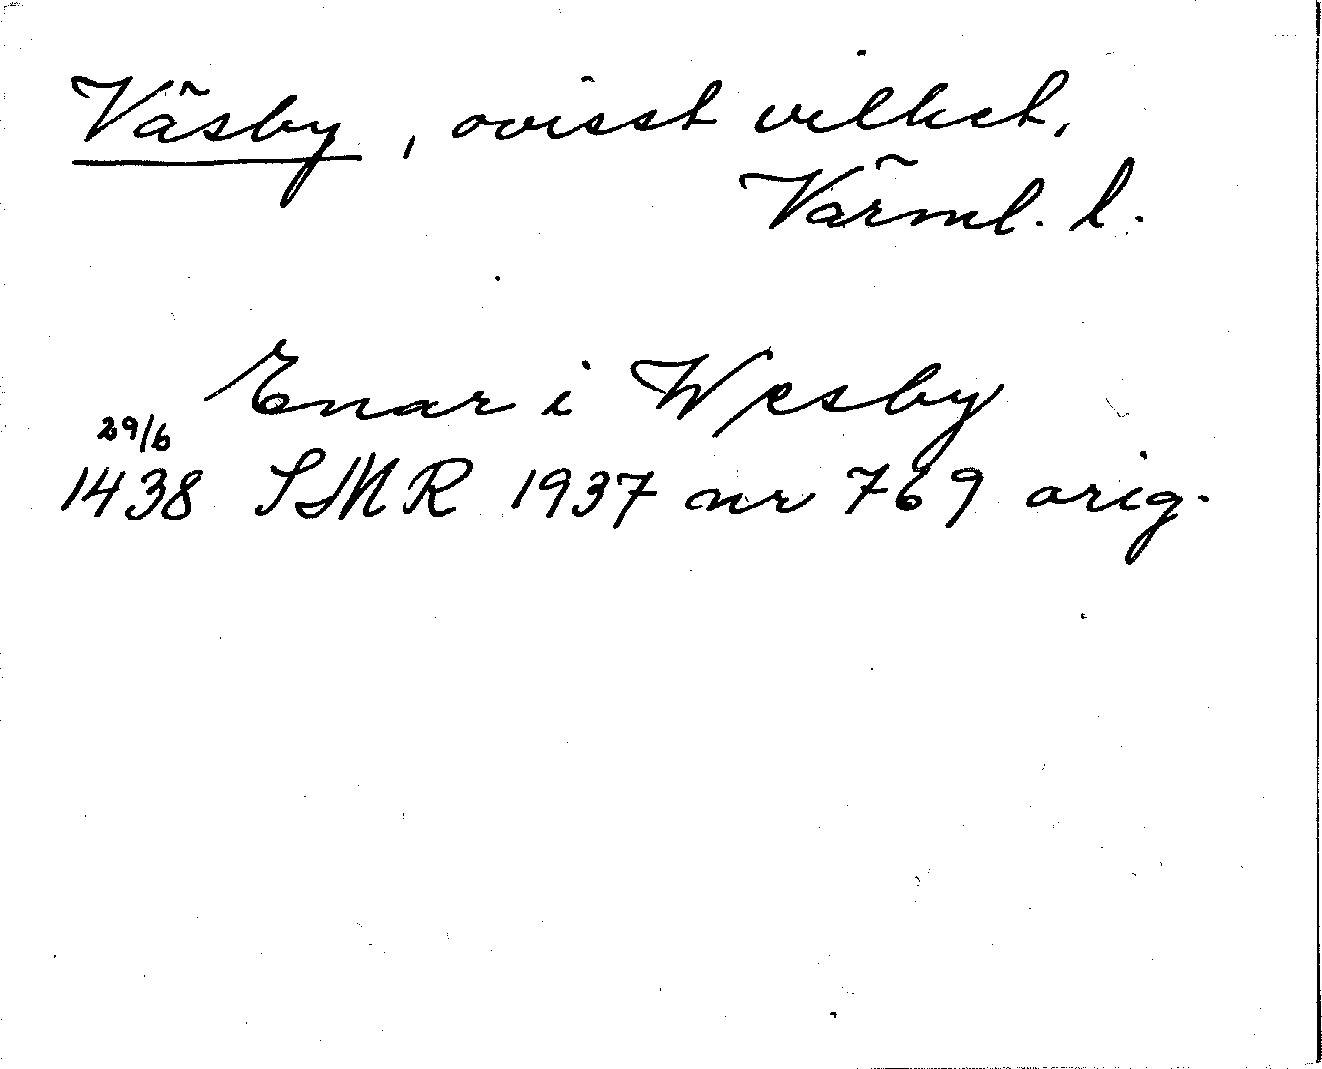 Väsby, ovisst vilket,
Värml. l.
Enar i Wesby
29/6
1438 SMR 1937 nr 769 orig.